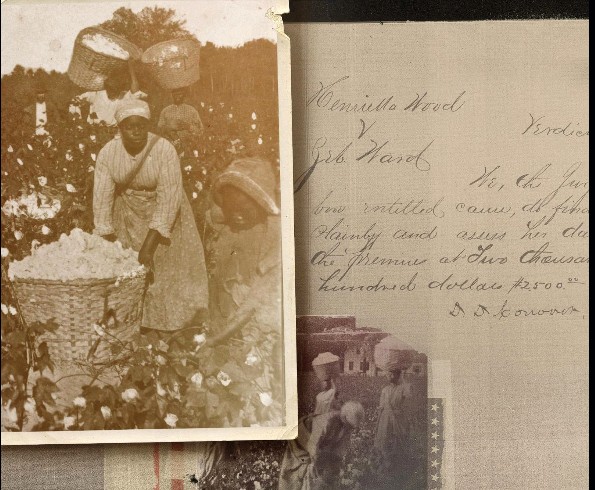 Henrietta Wood
V Verdic
Zeb Ward
We, the Jur
bove entitled cause, do find
Plaintiff and assess her da
the premises at Two thousan
hundred dollars $2500.00
D. D. Conover